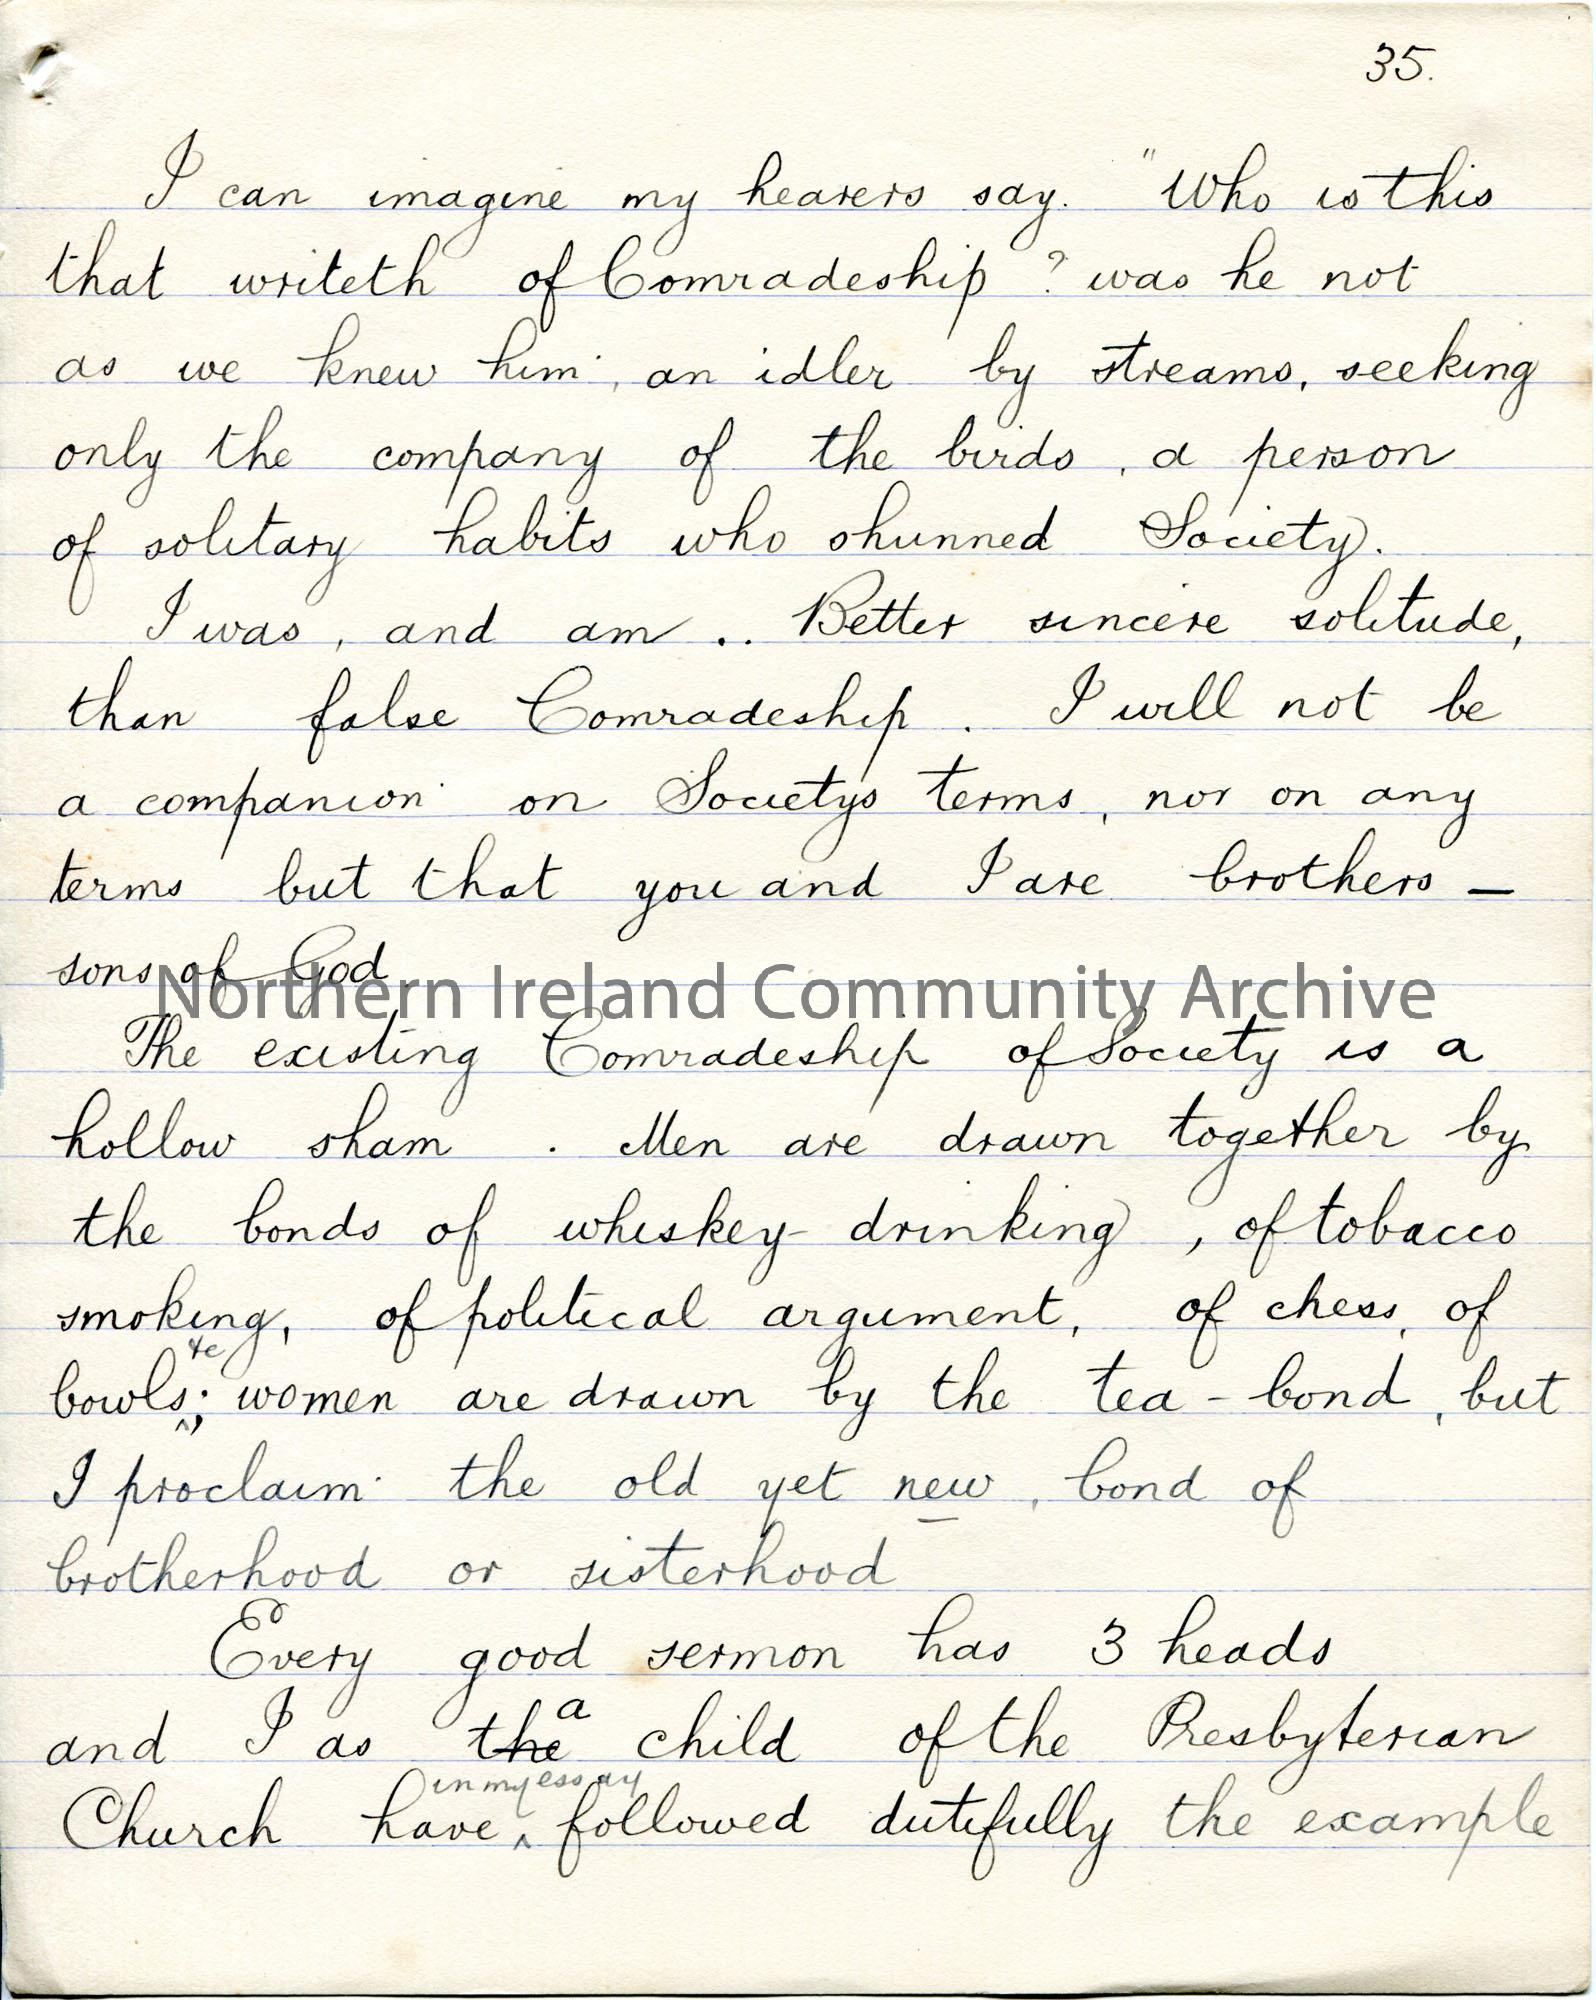 35.
I can imagine my hearers say. "Who is this
that writeth of Comradeship? was he not
as we knew him, an idler by streams, seeking
only the company of the birds, a person
of solitary habits who shunned Society.
I was, and am .. Better sincere solitude,
than false Comradeship. I will not be
a companion on Societys terms, nor on any
terms but that you and I are brothers —
sons of God
Northern Ireland Community Archive
The existing Comradeship of Society is a
hollow sham. Men are drawn together by
the bonds of whiskey-drinking, of tobacco
smoking, of political argument, of chess, of
bowls &c; women are drawn by the tea-bond, but
I proclaim the old yet new, bond of
brotherhood or sisterhood
Every good sermon has 3 heads
and I as the a child of the Presbyterian
Church have in my essay followed dutifully the example